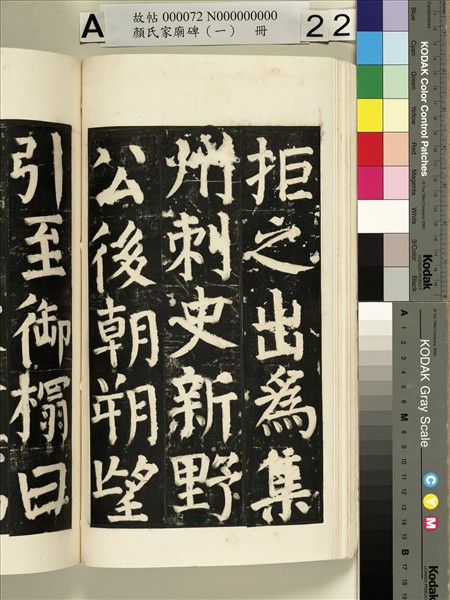 故帖 000072 N000000000
顏氏家廟碑（一） 冊
A
22
拒之出為集
州刺史新野
公後朝朔望
引至御榻曰
KODAK Color Control Patches
Blue
Cyan
Green
Yellow
Red
Magenta
White
3/Color
Black
Kodak
KODAK Gray Scale
C
Y
M
A 1 2 3 4 5 6 M 8 9 10 11 12 13 14 15 B 17 18 19
Kodak